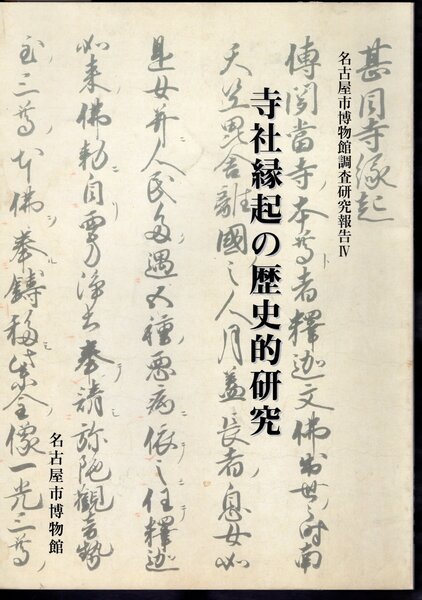 甚目寺縁起
名古屋市博物館調査研究報告Ⅳ
傳聞當寺本尊者釋迦文佛出世之時南
寺社縁起の歴史的研究
天竺毘舎離國之人月蓋長者息女如
是女并人民多遇五種悪病依之任釋迦
如来佛勅自西方浄土奉請弥陀観音勢
名古屋市博物館
至三尊本佛奉鋳移紫金像一光三尊